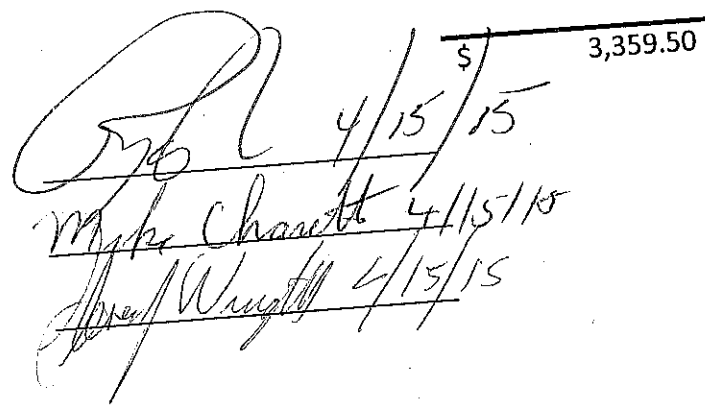 $ 3,359.50
4/15/15
Myke Charett 4/15/15
Wright 4/15/15